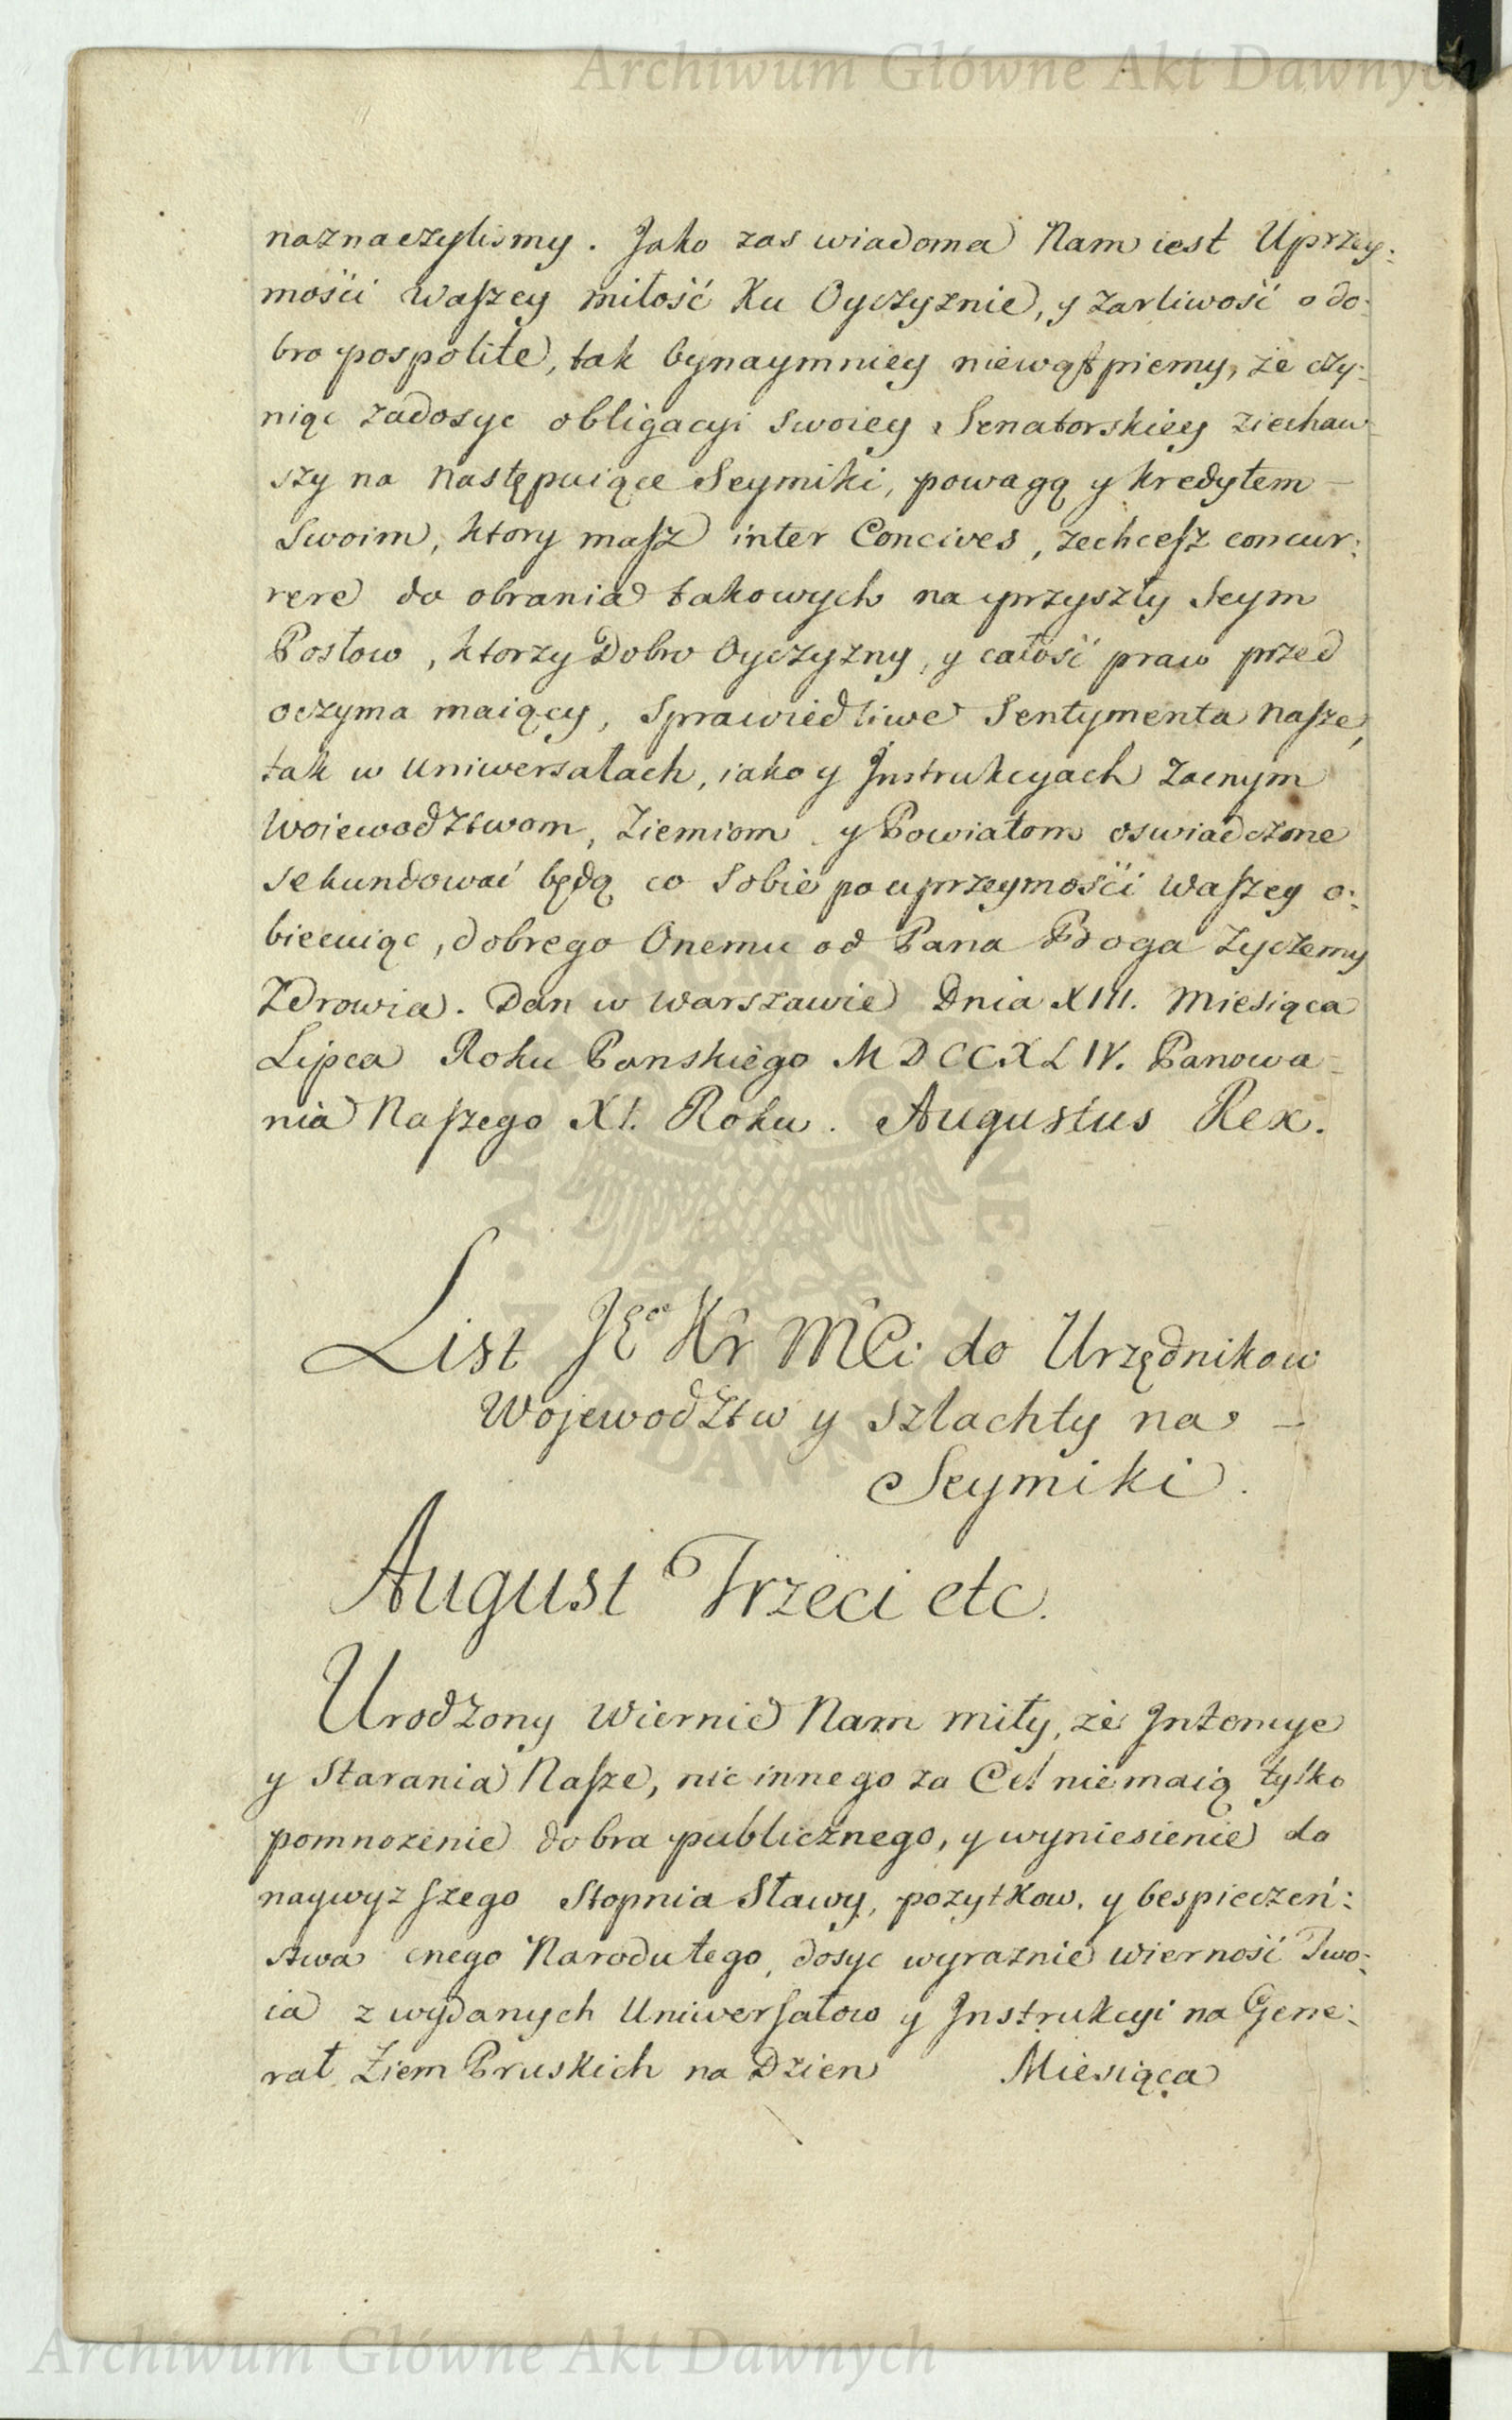 Archiwum Główne Akt Dawnych
naznaczylismy. Jako zas wiadoma Nam iest Uprzey:
mości Waszey miłość Ku Oyczyznie, y żarliwość o do:
bro pospolite, tak bynaymniey niewątpiemy, że czy:
niąc zadosyc obligacyi swoiey Senatorskiey ziechaw
szy na następuiące Seymiki, powagą y kredytem —
Swoim, ktory masz inter Concives, zechcesz concur:
rere do obrania takowych na przyszły Seym
Posłow, ktorzy Dobro Oyczyzny, y całość praw przed
oczyma maiący, Sprawiedliwe Sentymenta Nasze,
tak w Uniwersałach, iako y Instrukcyach Zacnym
Woiewodztwom, Ziemiom y Powiatom oswiadczone
sekundować będą co Sobie po uprzeymości Waszey o:
biecuiąc, dobrego Onemu od Pana Boga życzemy
Zdrowia. Dan w Warszawie Dnia XIII. Miesiąca
Lipca Roku Panskiego MDCCXLIV. Panowa
nia Naszego XI. Roku. Augustus Rex.
List JEo Kr MCi do Urzędnikow
Wojewodztw y szlachty na —
Seymiki.
August Trzeci etc.
Urodzony Wiernie Nam miły, że Intencye
y Starania Nasze, nic innego za Cel niemaią tylko
pomnozenie dobra publicznego, y wyniesienie do
naywyzszego Stopnia Sławy, pozytkow, y bespieczeń:
stwa cnego Narodu tego, dosyc wyraznie wierność Two:
ia z wydanych Uniwersałow y Instrukcyi na Gene:
rał Ziem Pruskich na Dzien Miesiąca
Archiwum Główne Akt Dawnych